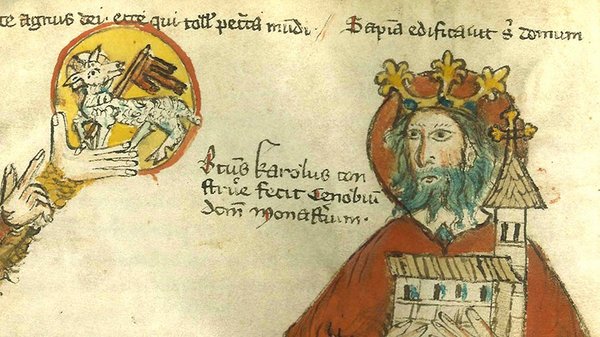 te agnus dei · ecce qui toll' pccta mūdi · //
Sapīa edificauit s̄ domum
Btūs karolus con
strūe fecit cenobiū
dom̄ monastīum ·